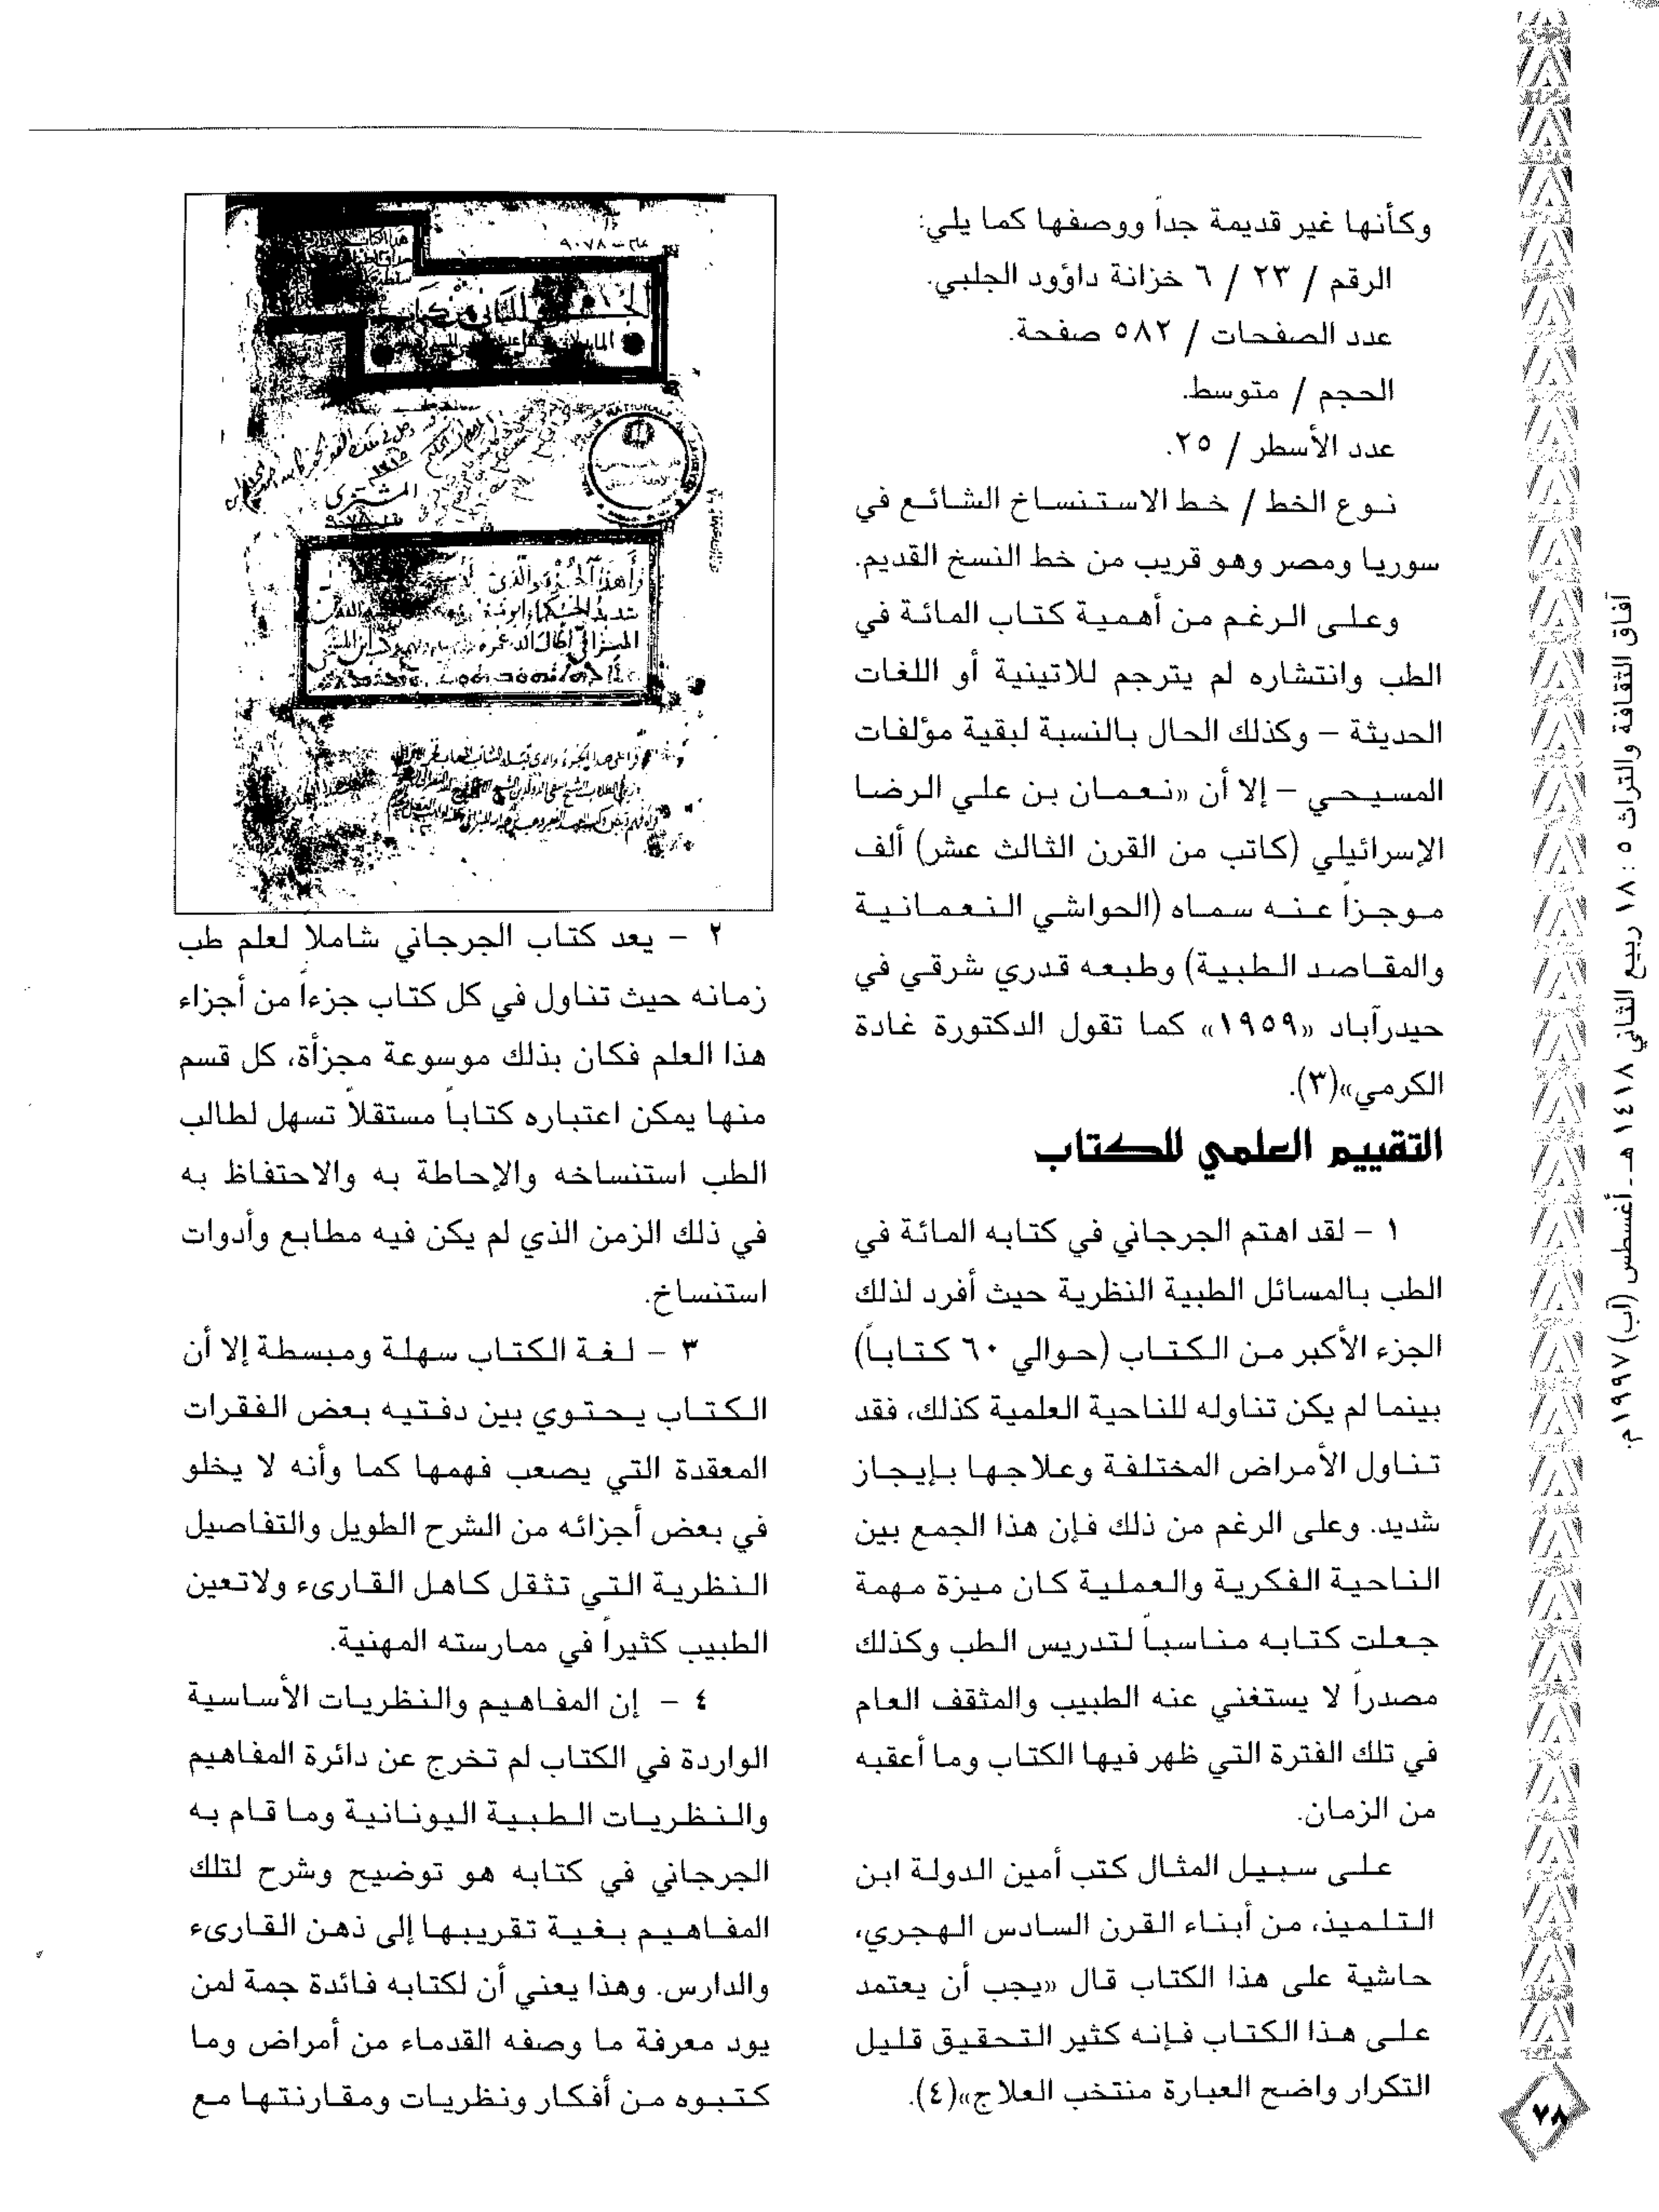 وكأنها غير قديمة جداً ووصفها كما يلي:
الرقم / ٢٣ / ٦ خزانة داؤود الجلبي.
عدد الصفحات / ٥٨٢ صفحة.
الحجم / متوسط.
عدد الأسطر / ٢٥.
نوع الخط / خط الاستنساخ الشائع في
سوريا ومصر وهو قريب من خط النسخ القديم.
وعلى الرغم من أهمية كتاب المائة في
الطب وانتشاره لم يترجم للاتينية أو اللغات
الحديثة – وكذلك الحال بالنسبة لبقية مؤلفات
المسيحي – إلا أن «نعمان بن علي الرضا
الإسرائيلي (كاتب من القرن الثالث عشر) ألف
موجزاً عنه سماه (الحواشي النعمانية
والمقاصد الطبية) وطبعه قدري شرقي في
حيدرآباد «١٩٥٩» كما تقول الدكتورة غادة
الكرمي»(٣).
التقييم العلمي للكتاب
١ – لقد اهتم الجرجاني في كتابه المائة في
الطب بالمسائل الطبية النظرية حيث أفرد لذلك
الجزء الأكبر من الكتاب (حوالي ٦٠ كتاباً)
بينما لم يكن تناوله للناحية العلمية كذلك، فقد
تناول الأمراض المختلفة وعلاجها بإيجاز
شديد. وعلى الرغم من ذلك فإن هذا الجمع بين
الناحية الفكرية والعملية كان ميزة مهمة
جعلت كتابه مناسباً لتدريس الطب وكذلك
مصدراً لا يستغني عنه الطبيب والمثقف العام
في تلك الفترة التي ظهر فيها الكتاب وما أعقبه
من الزمان.
على سبيل المثال كتب أمين الدولة ابن
التلميذ، من أبناء القرن السادس الهجري،
حاشية على هذا الكتاب قال «يجب أن يعتمد
على هذا الكتاب فإنه كثير التحقيق قليل
التكرار واضح العبارة منتخب العلاج»(٤).
٩٠٧٨
المشترى
٩٠٧٨
٢ – يعد كتاب الجرجاني شاملاً لعلم طب
زمانه حيث تناول في كل كتاب جزءاً من أجزاء
هذا العلم فكان بذلك موسوعة مجزأة، كل قسم
منها يمكن اعتباره كتاباً مستقلاً تسهل لطالب
الطب استنساخه والإحاطة به والاحتفاظ به
في ذلك الزمن الذي لم يكن فيه مطابع وأدوات
استنساخ.
٣ – لغة الكتاب سهلة ومبسطة إلا أن
الكتاب يحتوي بين دفتيه بعض الفقرات
المعقدة التي يصعب فهمها كما وأنه لا يخلو
في بعض أجزائه من الشرح الطويل والتفاصيل
النظرية التي تثقل كاهل القارىء ولاتعين
الطبيب كثيراً في ممارسته المهنية.
٤ – إن المفاهيم والنظريات الأساسية
الواردة في الكتاب لم تخرج عن دائرة المفاهيم
والنظريات الطبية اليونانية وما قام به
الجرجاني في كتابه هو توضيح وشرح لتلك
المفاهيم بغية تقريبها إلى ذهن القارىء
والدارس. وهذا يعني أن لكتابه فائدة جمة لمن
يود معرفة ما وصفه القدماء من أمراض وما
كتبوه من أفكار ونظريات ومقارنتها مع
آفاق الثقافة والتراث ٥ : ١٨ ربيع الثاني ١٤١٨ هـ ـ أغسطس (آب) ١٩٩٧ م.
٧٨